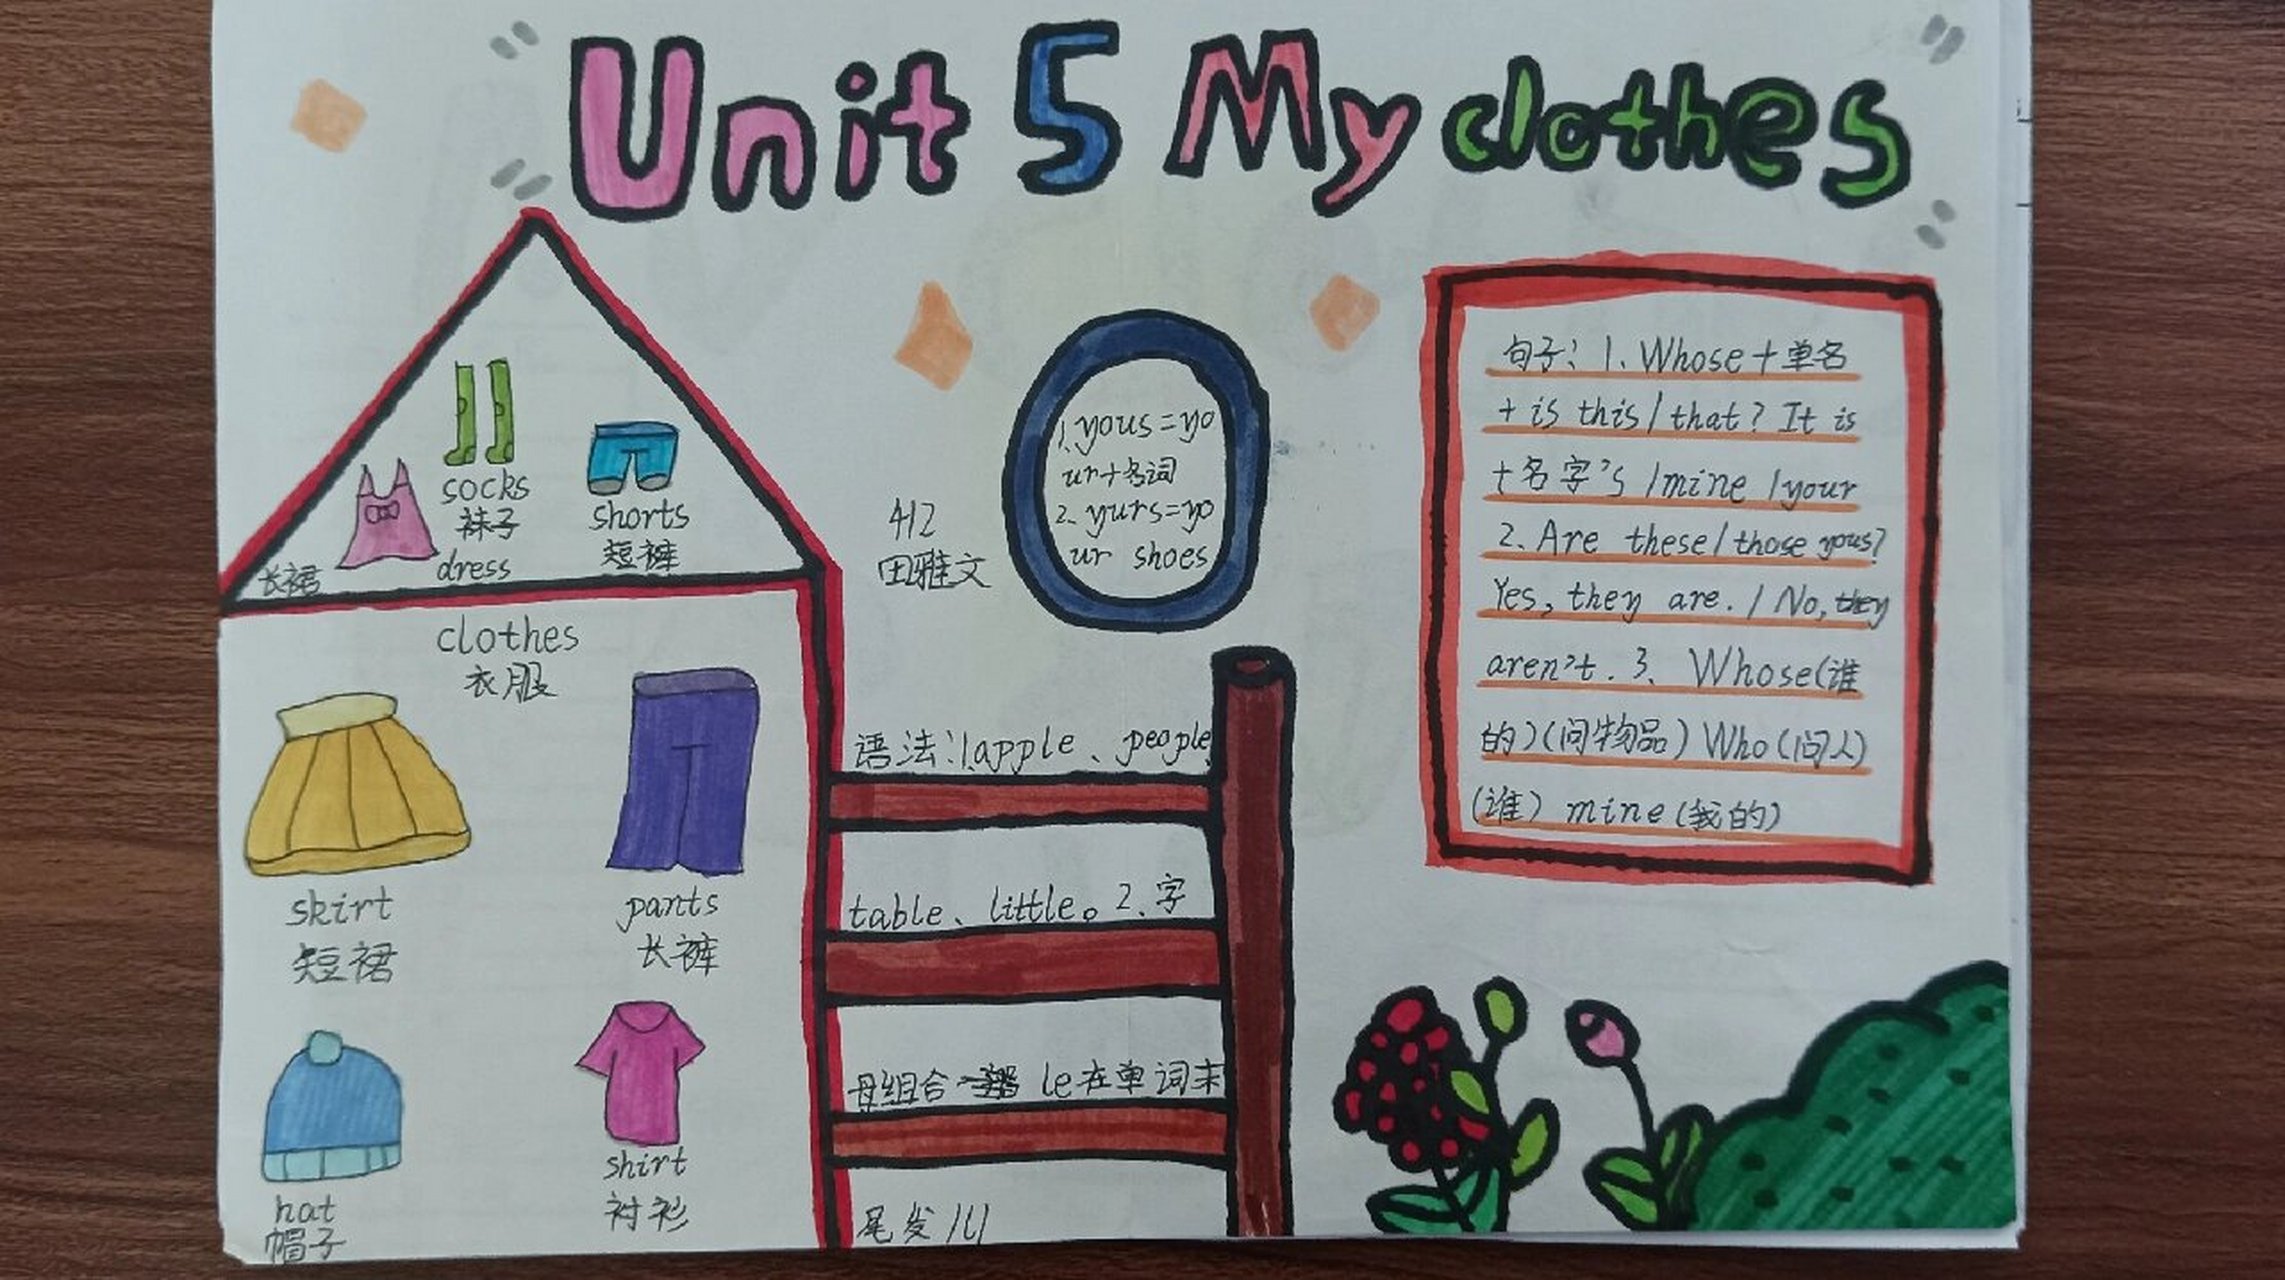 Unit 5 My clothes
socks
袜子
shorts
短裤
dress
长裙
clothes
衣服
skirt
短裙
pants
长裤
hat
帽子
shirt
衬衫
412
田雅文
1.yous=yo
ur+名词
2.yurs=yo
ur shoes
语法:1.apple、people、
table、little。2.字
母组合 le在单词末
尾发/l/
句子:1.Whose+单名
+is this/that? It is
+名字's/mine/your
2.Are these/those yous?
Yes, they are./No, they
aren't.3、Whose(谁
的)(问物品)Who(问人)
(谁)mine(我的)